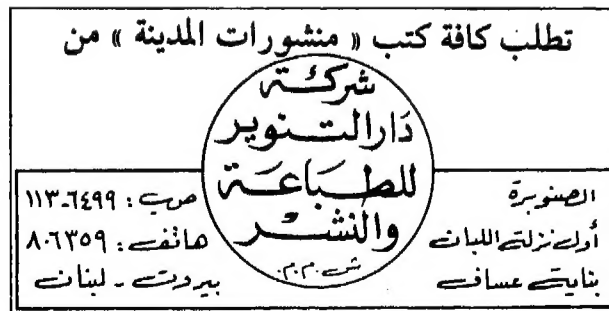 تطلب كافة كتب « منشورات المدينة » من
شركة
دار التنوير
للطباعة
والنشر
ش.م.م.
الصنوبرة
أول نزلة اللبان
بناية عساف
ص ب : ٦٤٩٩-١١٣
هاتف : ٨٠٦٣٥٩
بيروت - لبنان